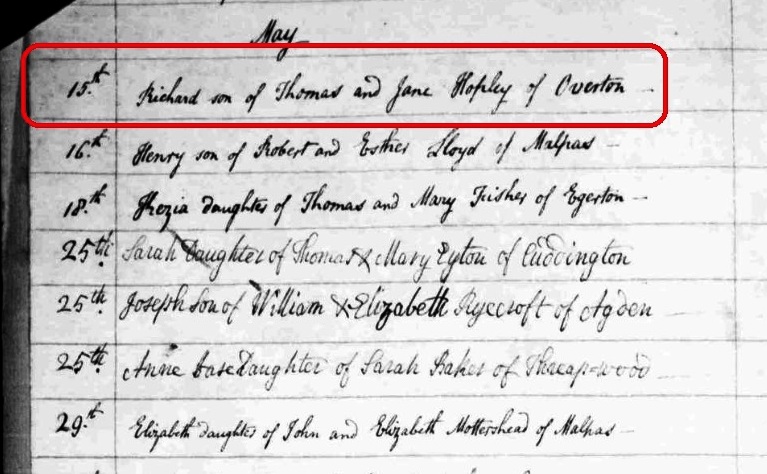 May
15.th Richard son of Thomas and Jane Hopley of Overton
16.th Henry son of Robert and Esther Lloyd of Malpas
18.th Kezia daughter of Thomas and Mary Fisher of Egerton
25th. Sarah Daughter of Thomas & Mary Eyton of Cuddington
25th. Joseph Son of William & Elizabeth Ryecroft of Agden
25th. Anne base Daughter of Sarah Baker of Threap-wood
29.th Elizabeth daughter of John and Elizabeth Mottershead of Malpas